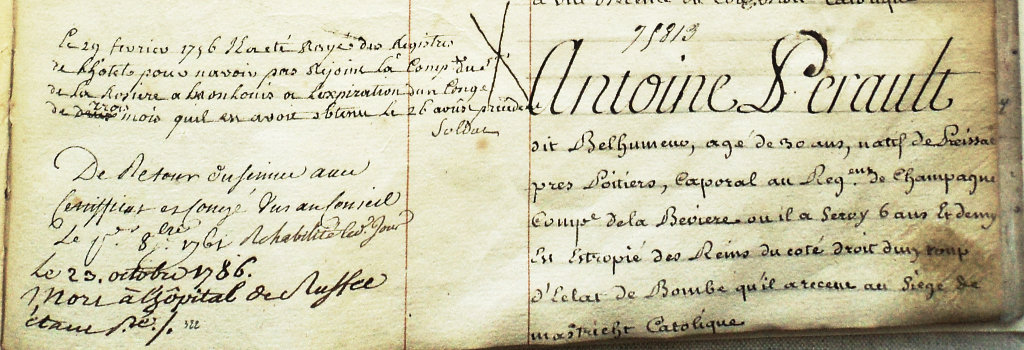 Le 29 fevrier 1756 Il a eté Rayé des Registres
de l'hotel pour n'avoir pas Rejoint la Comp.e du Sr.
de la Rosiere a Monlouis a l'expiration d'un Congé
de trois mois qu'il en avoit obtenu le 26 août précédent
Soldat
De Retour avec
Certifficat et Congé Vus au Conseil
Le 1er 8bre 1761 Rehabilité led. Jour
Le 23. octobre 1786.
Mort à l'hôpital de Ruffec
étant
Catolique
75813
Antoine Perault
dit Belhumeur, agé de 30 ans, natif de
pres Poitiers, Caporal au Reg.ent de Champagne
Comp.e de la Beviere ou il a Servy 6 ans Et demy
Est Estropié des Reins du coté droit d'un coup
d'Eclat de Bombe qu'il a receue au Siége de
mastricht Catolique